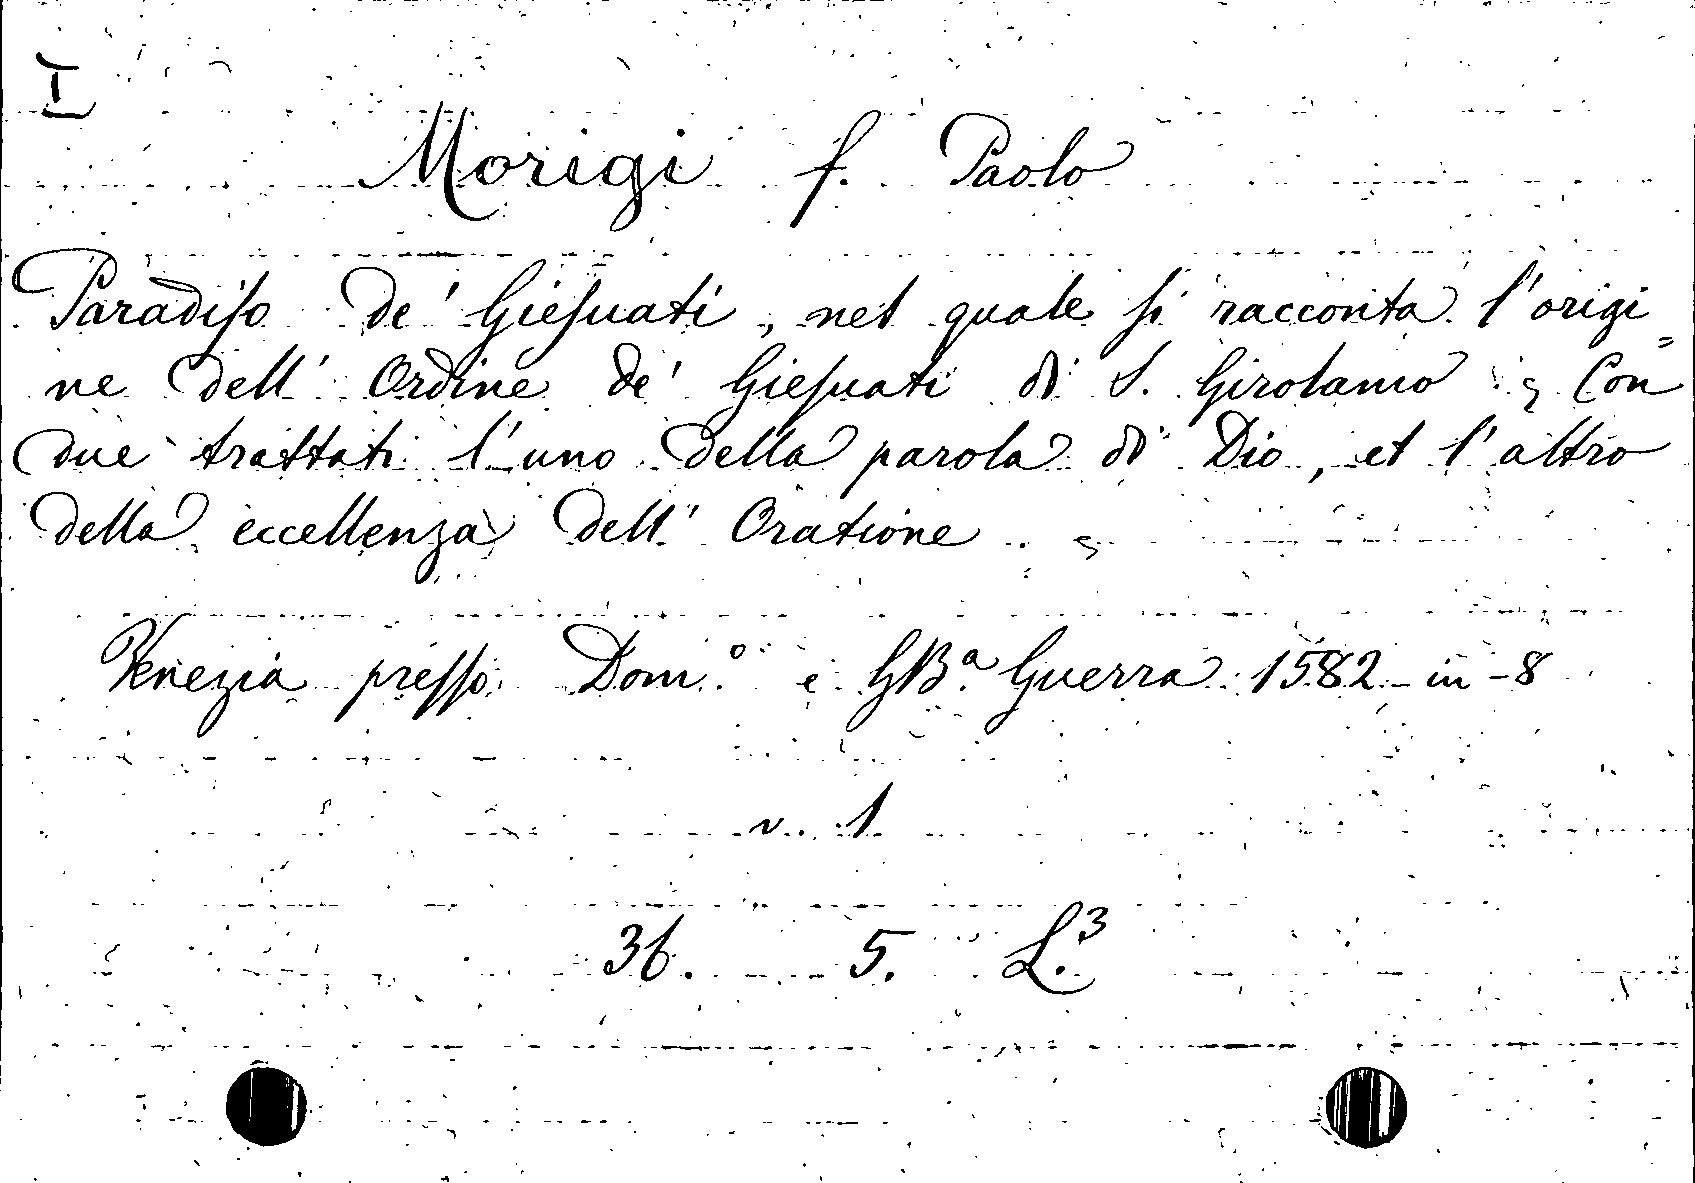 I
Morigi f. Paolo
Paradiso de' Giesuati, nel quale si racconta l'origi=
ne dell' Ordine de' Giesuati di S. Girolamo; Con
due trattati l'uno della parola di Dio, et l'altro
della eccellenza dell' Oratione.
Venezia presso Dom.º e GB.ª Guerra 1582 in-8
v. 1
36. 5. L.3